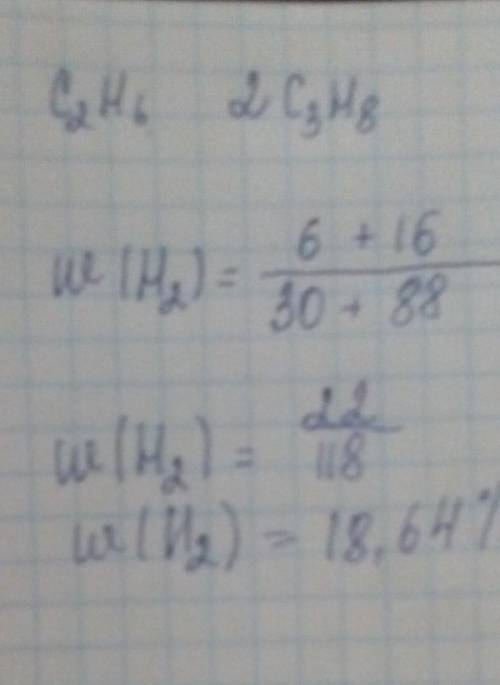 C₂H₆ 2C₃H₈
w(H₂) = 6 + 16
30 + 88
w(H₂) = 22
118
w(H₂) = 18,64%